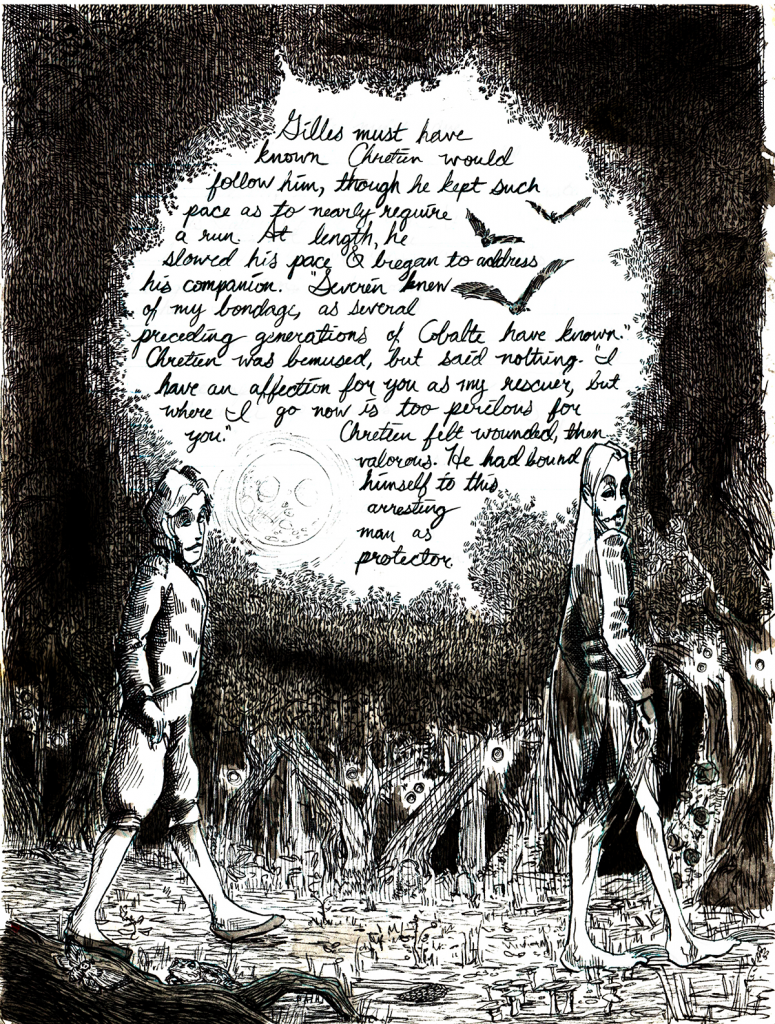 Gilles must have
known Chretien would
follow him, though he kept such
pace as to nearly require
a run. At length, he
slowed his pace & began to address
his companion. "Severin knew
of my bondage, as several
preceding generations of Cobalte have known."
Chretien was bemused, but said nothing. "I
have an affection for you as my rescuer, but
where I go now is too perilous for
you."
Chretien felt wounded, then
valorous. He had bound
himself to this
arresting
man as
protector.